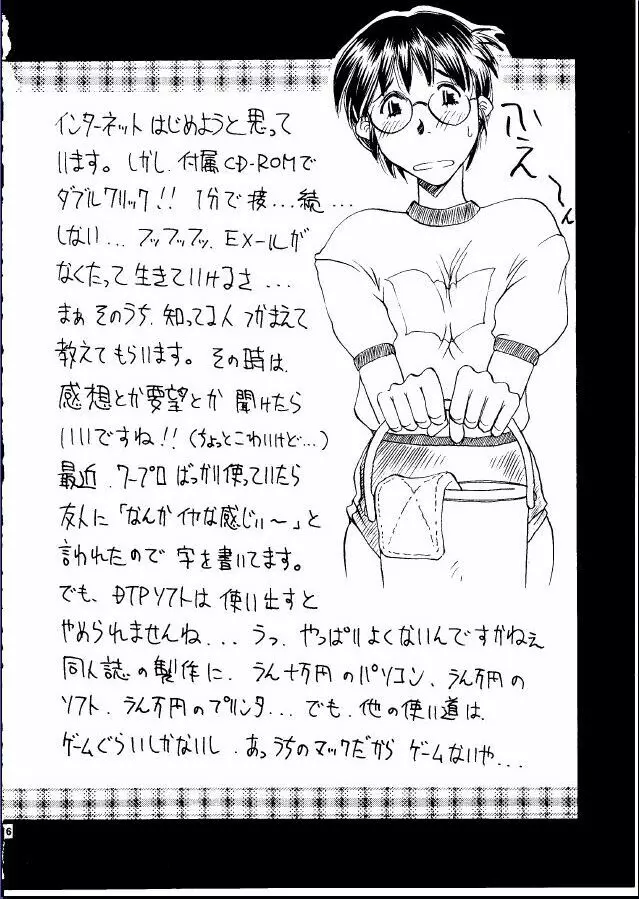 インターネットはじめようと思って
います。しかし、付属CD-ROMで
ダブルクリック!! 1分で接...続...
しない... フッフッフッ、EXールが
なくたって生きていけるさ...
まぁ そのうち、知ってる人 つかまえて
教えてもらいます。その時は、
感想とか要望とか 聞けたら
いいですね!!(ちょっとこわいけど...)
最近、ワープロばっかり使っていたら
友人に「なんかイヤな感じぃ〜」と
言われたので 字を書いてます。
でも、DTPソフトは 使い出すと
やめられませんね... うっ、やっぱりよくないんですかねぇ
同人誌の製作に、うん十万円のパソコン、うん万円の
ソフト、うん万円のプリンタ... でも、他の使い道は
ゲームぐらいしかないし、あっうちのマックだから ゲームないや...
ふえ〜ん
16